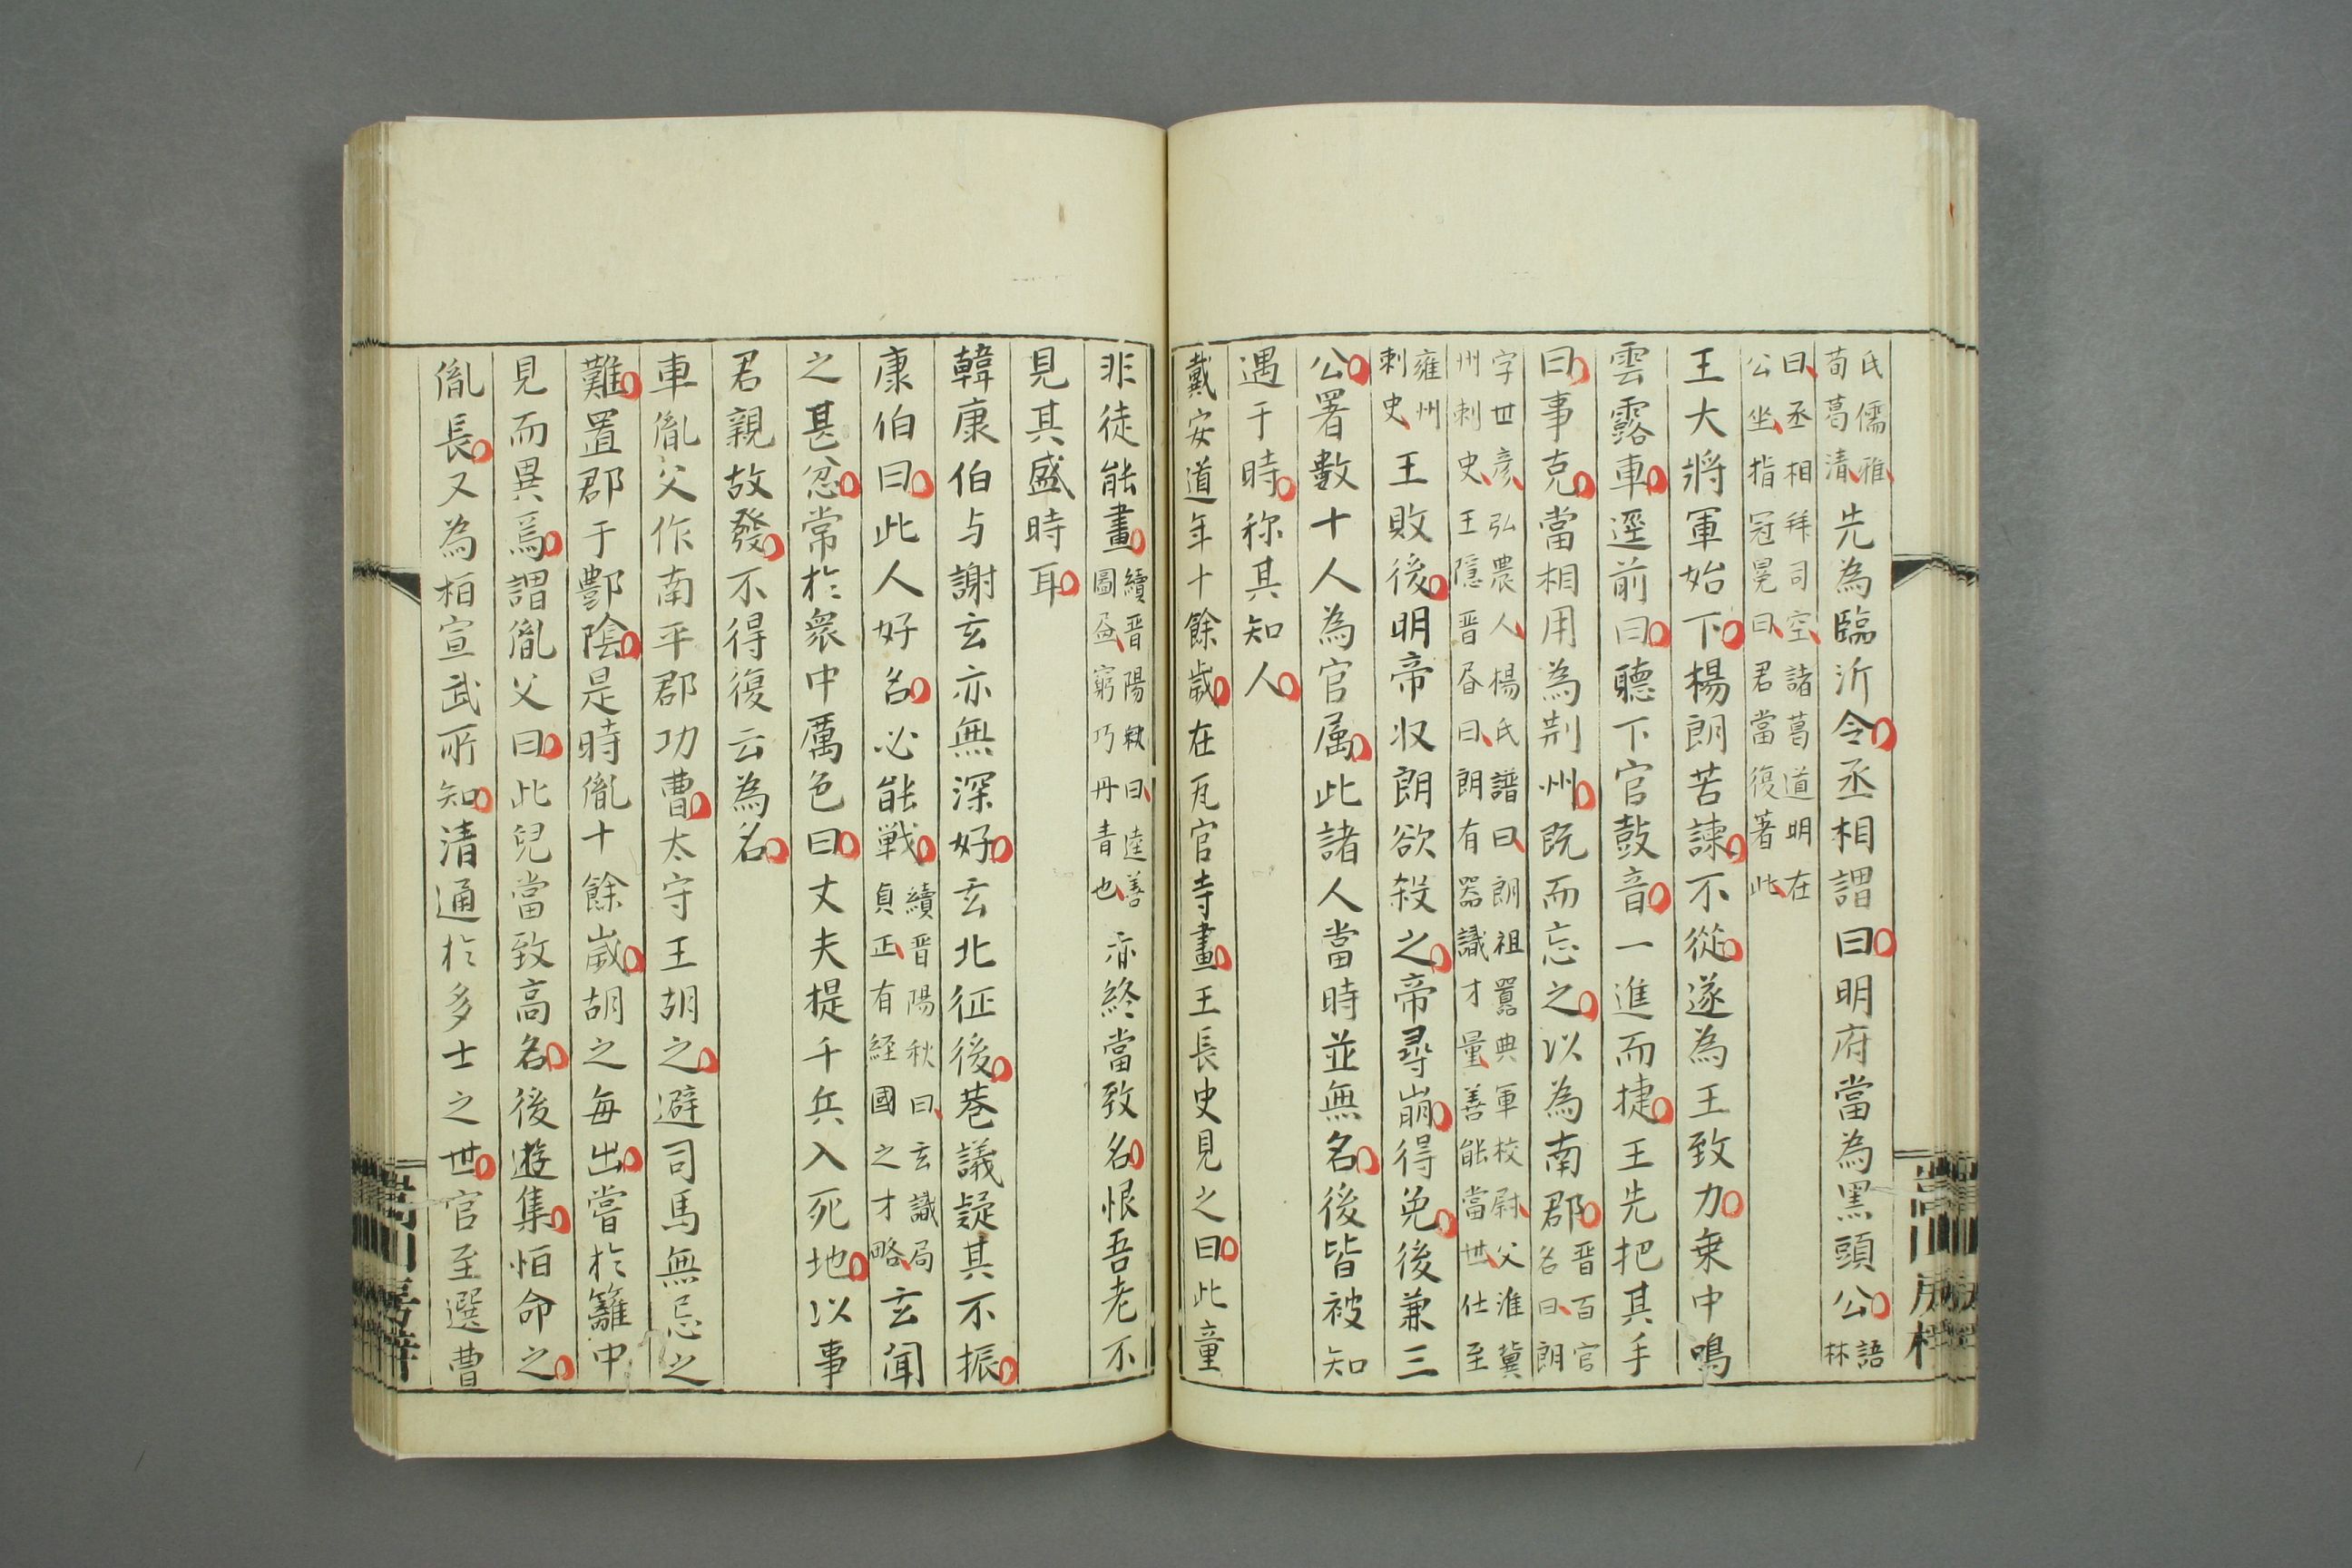 氏儒雅荀葛清先為臨沂令丞相謂曰明府當為黑頭公語林
曰丞相拜司空諸葛道明在公坐指冠冕曰君當復著此
王大將軍始下楊朗苦諫不從遂為王致力乗中鳴
雲露車逕前曰聽下官鼓音一進而捷王先把其手
曰事克當相用為荊州既而忘之以為南郡晋百官名曰朗
字世彦弘農人楊氏譜曰朗祖嚣典軍校尉父淮冀州刺史王隱晋书曰朗有器識才量善能當世仕至
雍州刺史王敗後明帝収朗欲殺之帝尋崩得免後兼三
公署數十人為官属此諸人當時並無名後皆被知
遇于時称其知人
戴安道年十餘歲在瓦官寺畫王長史見之曰此童
非徒能畫續晋陽秋曰逵善圖畫窮巧丹青也亦終當致名恨吾老不
見其盛時耳
韓康伯与謝玄亦無深好玄北征後巷議疑其不振
康伯曰此人好名必能戦續晋陽秋曰玄識局貞正有経國之才略玄聞
之甚忿常於衆中厲色曰丈夫提千兵入死地以事
君親故發不得復云為名
車胤父作南平郡功曹太守王胡之避司馬無忌之
難置郡于酆陰是時胤十餘歲胡之每出嘗於籬中
見而異焉謂胤父曰此兒當致高名後遊集恒命之
胤長又為桓宣武所知清通於多士之世官至選曹